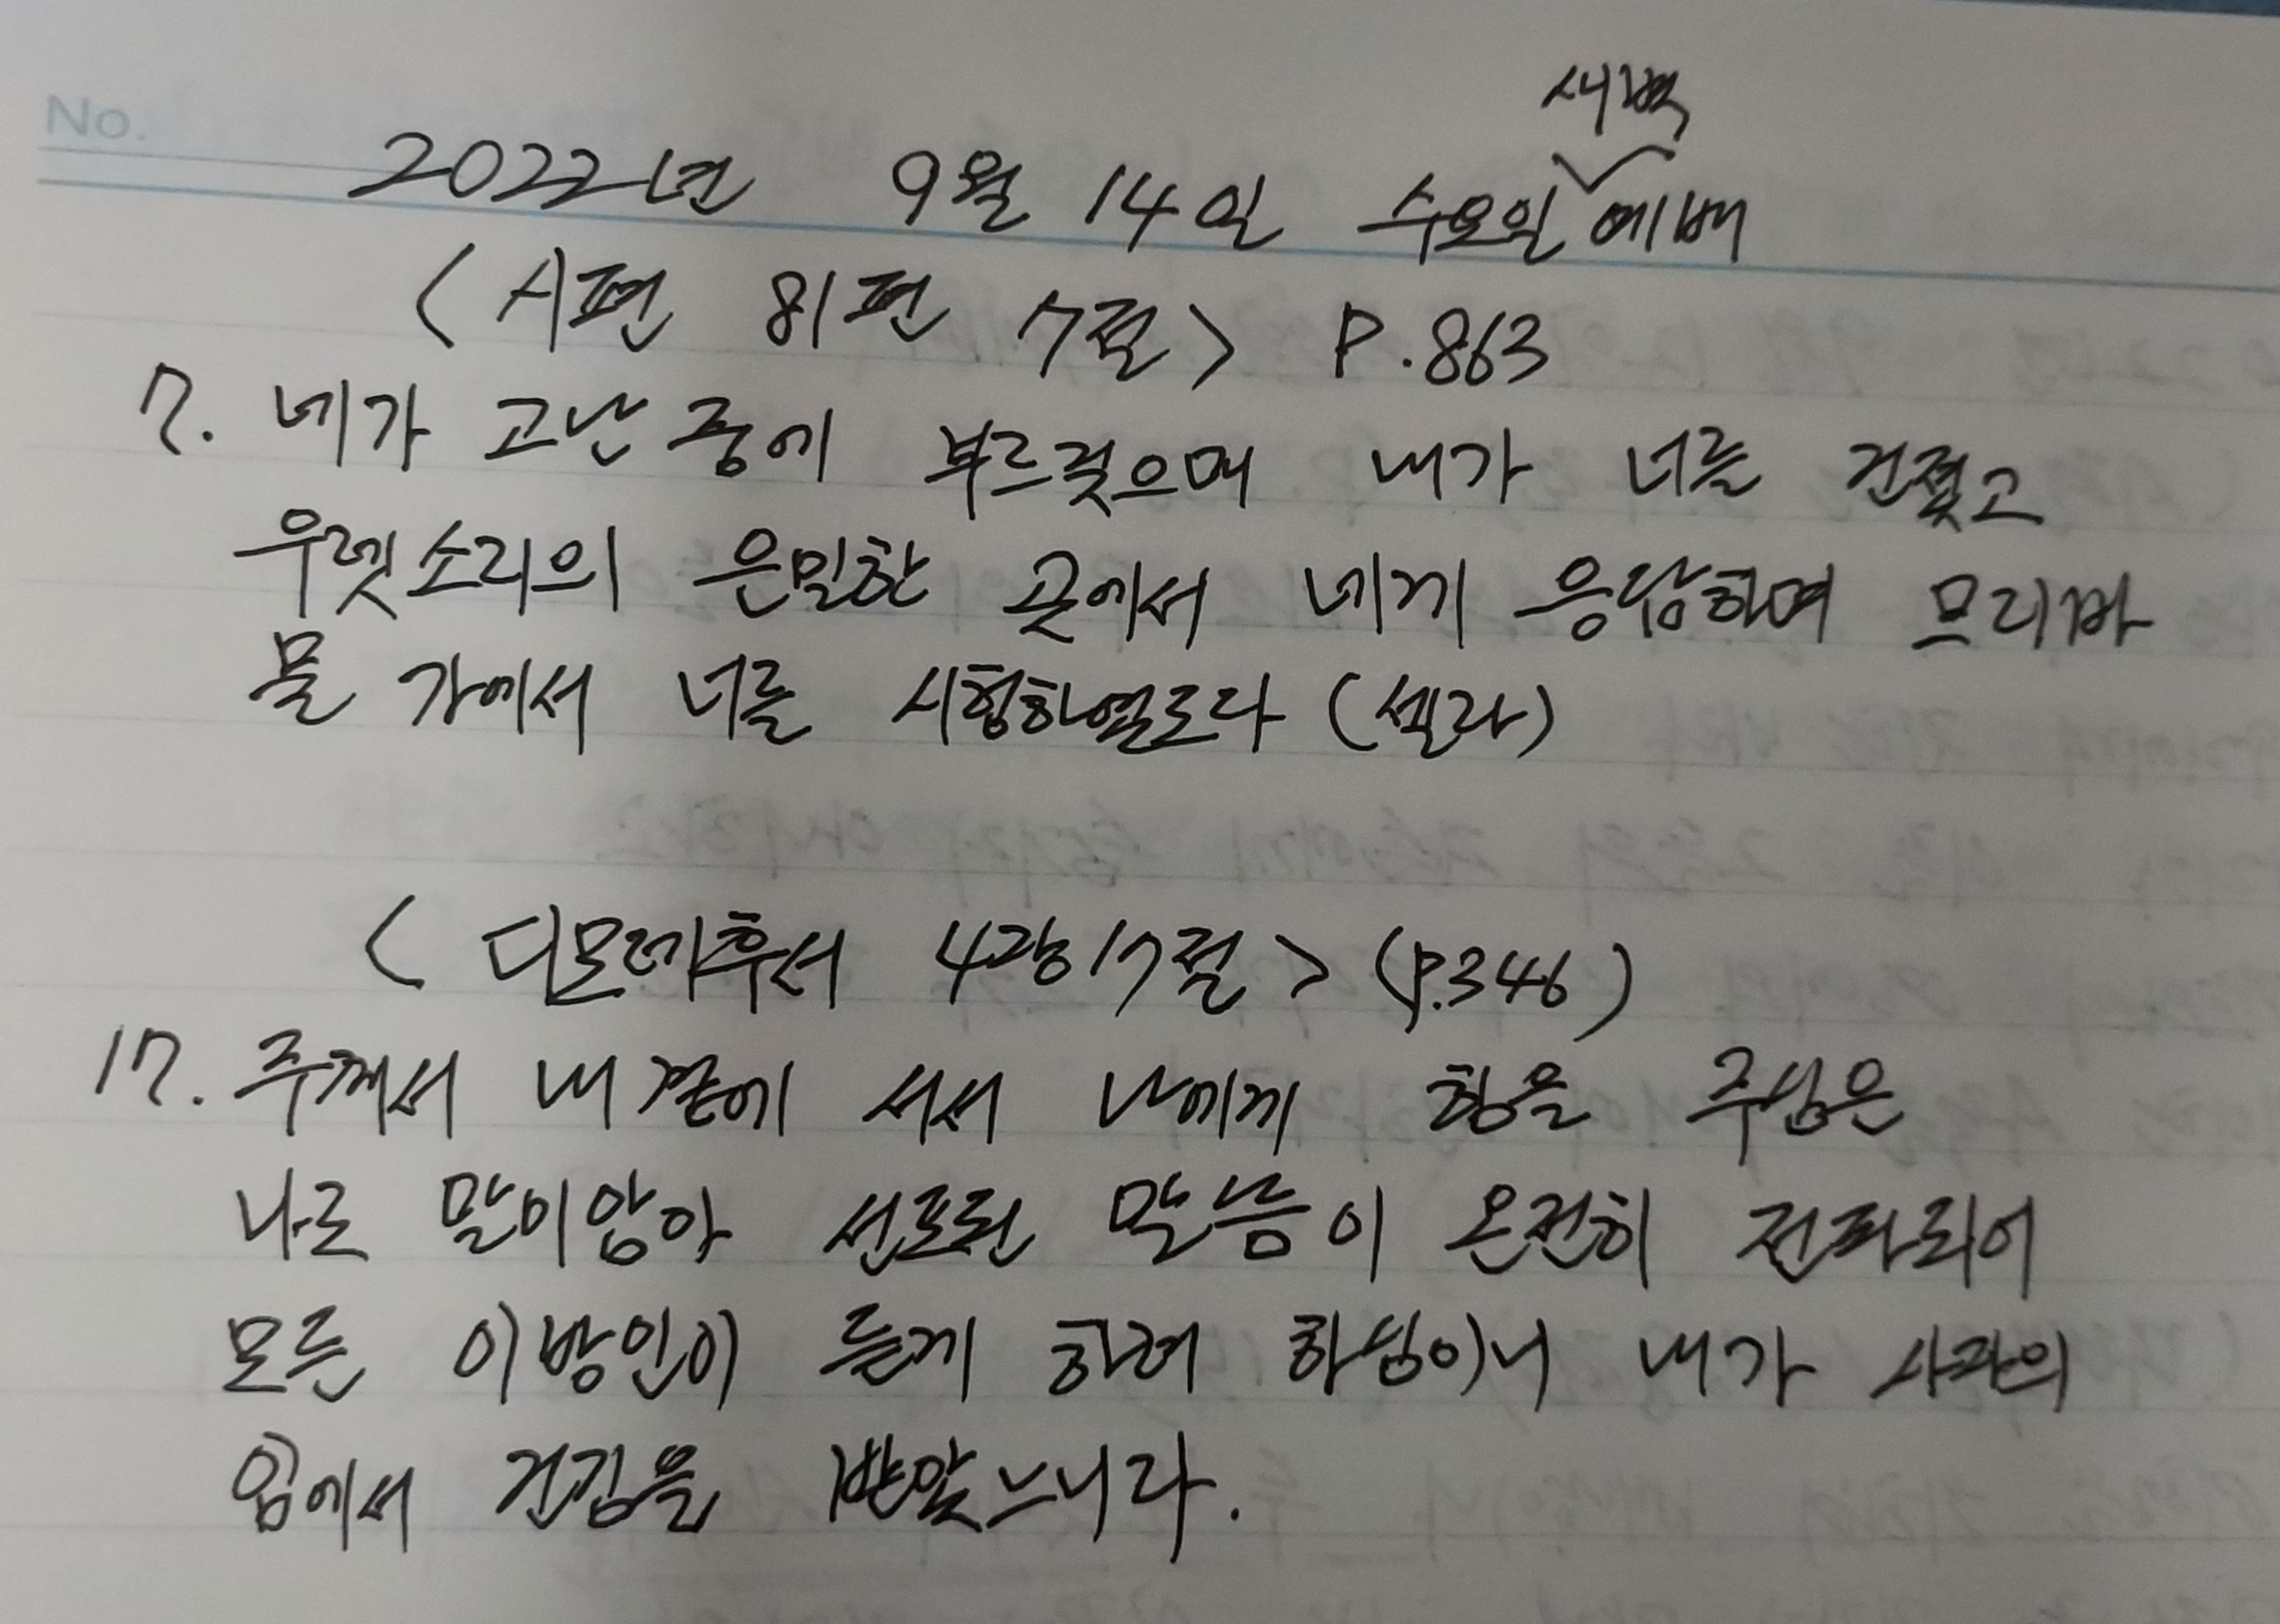 No.
2022년 9월 14일 수요일 새벽 예배
<시편 81편 7절> P.863
7. 네가 고난 중에 부르짖으매 내가 너를 건졌고
우렛소리의 은밀한 곳에서 네게 응답하며 므리바
물 가에서 너를 시험하였도다 (셀라)
< 디모데후서 4장 17절 > (P.346)
17. 주께서 내 곁에 서서 나에게 힘을 주심은
나로 말미암아 선포된 말씀이 온전히 전파되어
모든 이방인이 듣게 하려 하심이니 내가 사자의
입에서 건짐을 받았느니라.